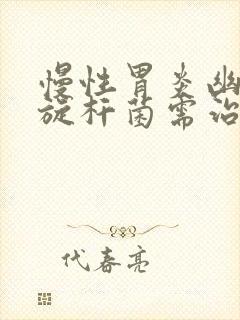 慢性胃炎幽
旋杆菌需治
代春亮